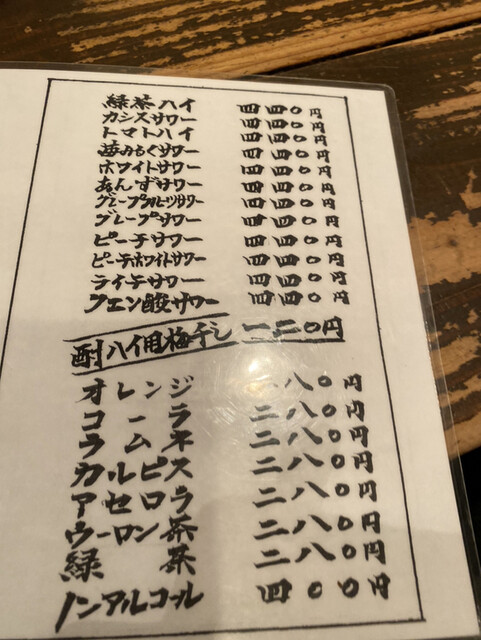 緑茶ハイ 四四〇円
カシスサワー 四四〇円
トマトハイ 四四〇円
苺みるくサワー 四四〇円
ホワイトサワー 四四〇円
あんずサワー 四四〇円
グレープフルーツサワー 四四〇円
グレープサワー 四四〇円
ピーチサワー 四四〇円
ピーチホワイトサワー 四四〇円
ライチサワー 四四〇円
クエン酸サワー 四四〇円
酎ハイ用梅干し 一二〇円
オレンジ 二八〇円
コーラ 二八〇円
ラムネ 二八〇円
カルピス 二八〇円
アセロラ 二八〇円
ウーロン茶 二八〇円
緑茶 二八〇円
ノンアルコール 四〇〇円